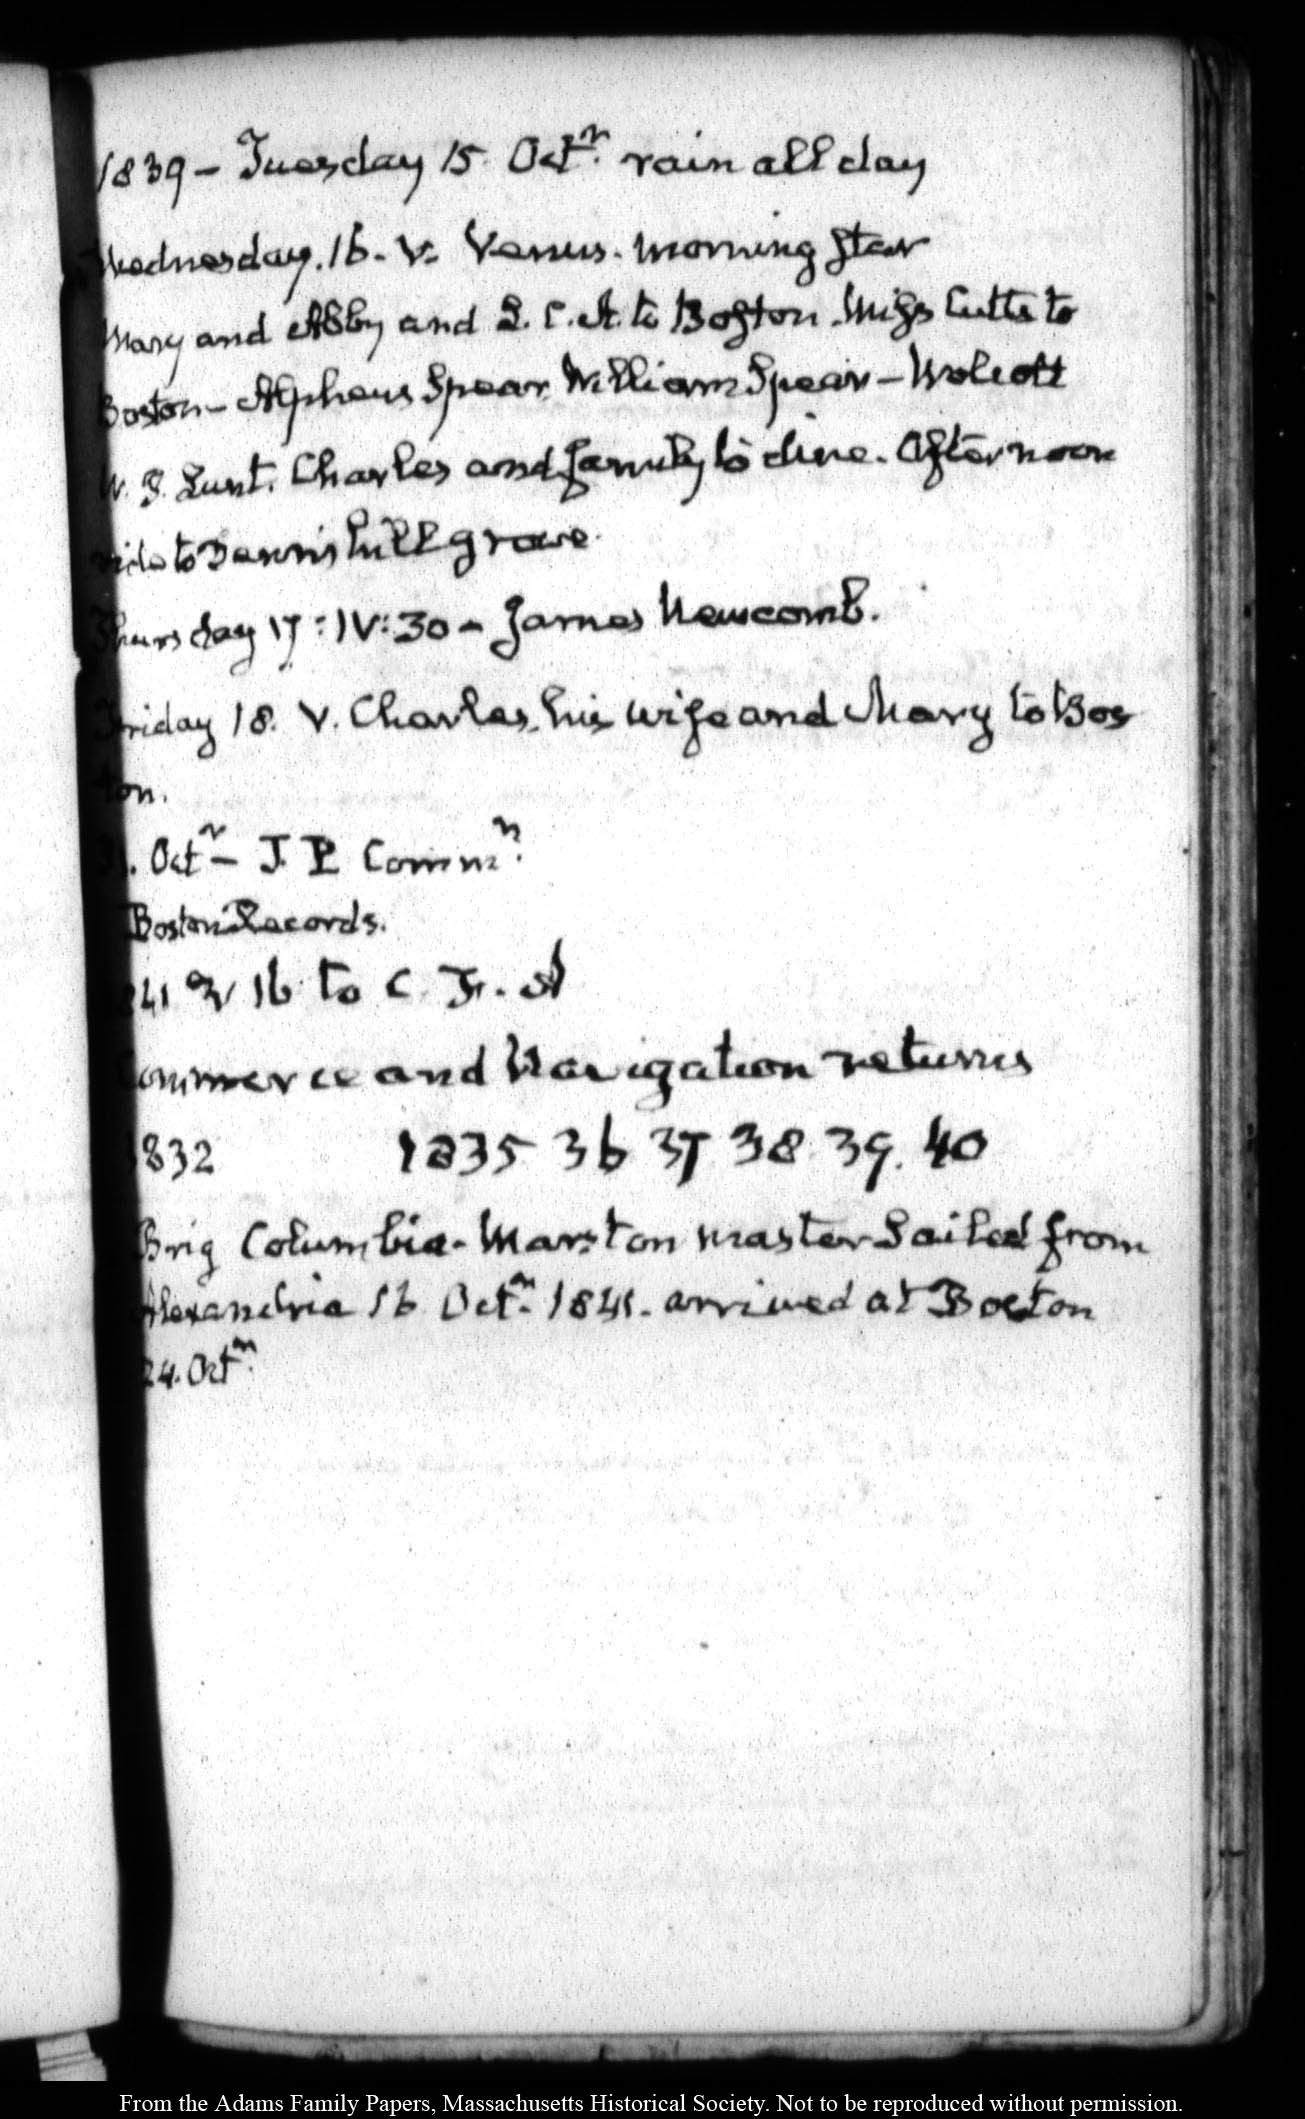 1839 – Tuesday 15. Octr. rain all day
Wednesday. 16. V. Venus. morning star
Mary and Abby and L. C. A. to Boston. Miss Cutts to
Boston – Alpheus Spear, William Spear – Wolcott
W. P. Lunt. Charles and family to dine. Afternoon
ride to Dennis hill grove.
Thursday 17: IV:30 – James Newcomb.
Friday 18. V. Charles, his wife and Mary to Bos
ton.
Octr – J. P. Comm
Boston Records.
16 to C. F. A
Commerce and Navigation returns
1832 1835 36 37 38. 39. 40
Brig Columbia – Marston master Sailed from
Alexandria 16 Octr. 1841. arrived at Boston
24. Octr.
From the Adams Family Papers, Massachusetts Historical Society. Not to be reproduced without permission.